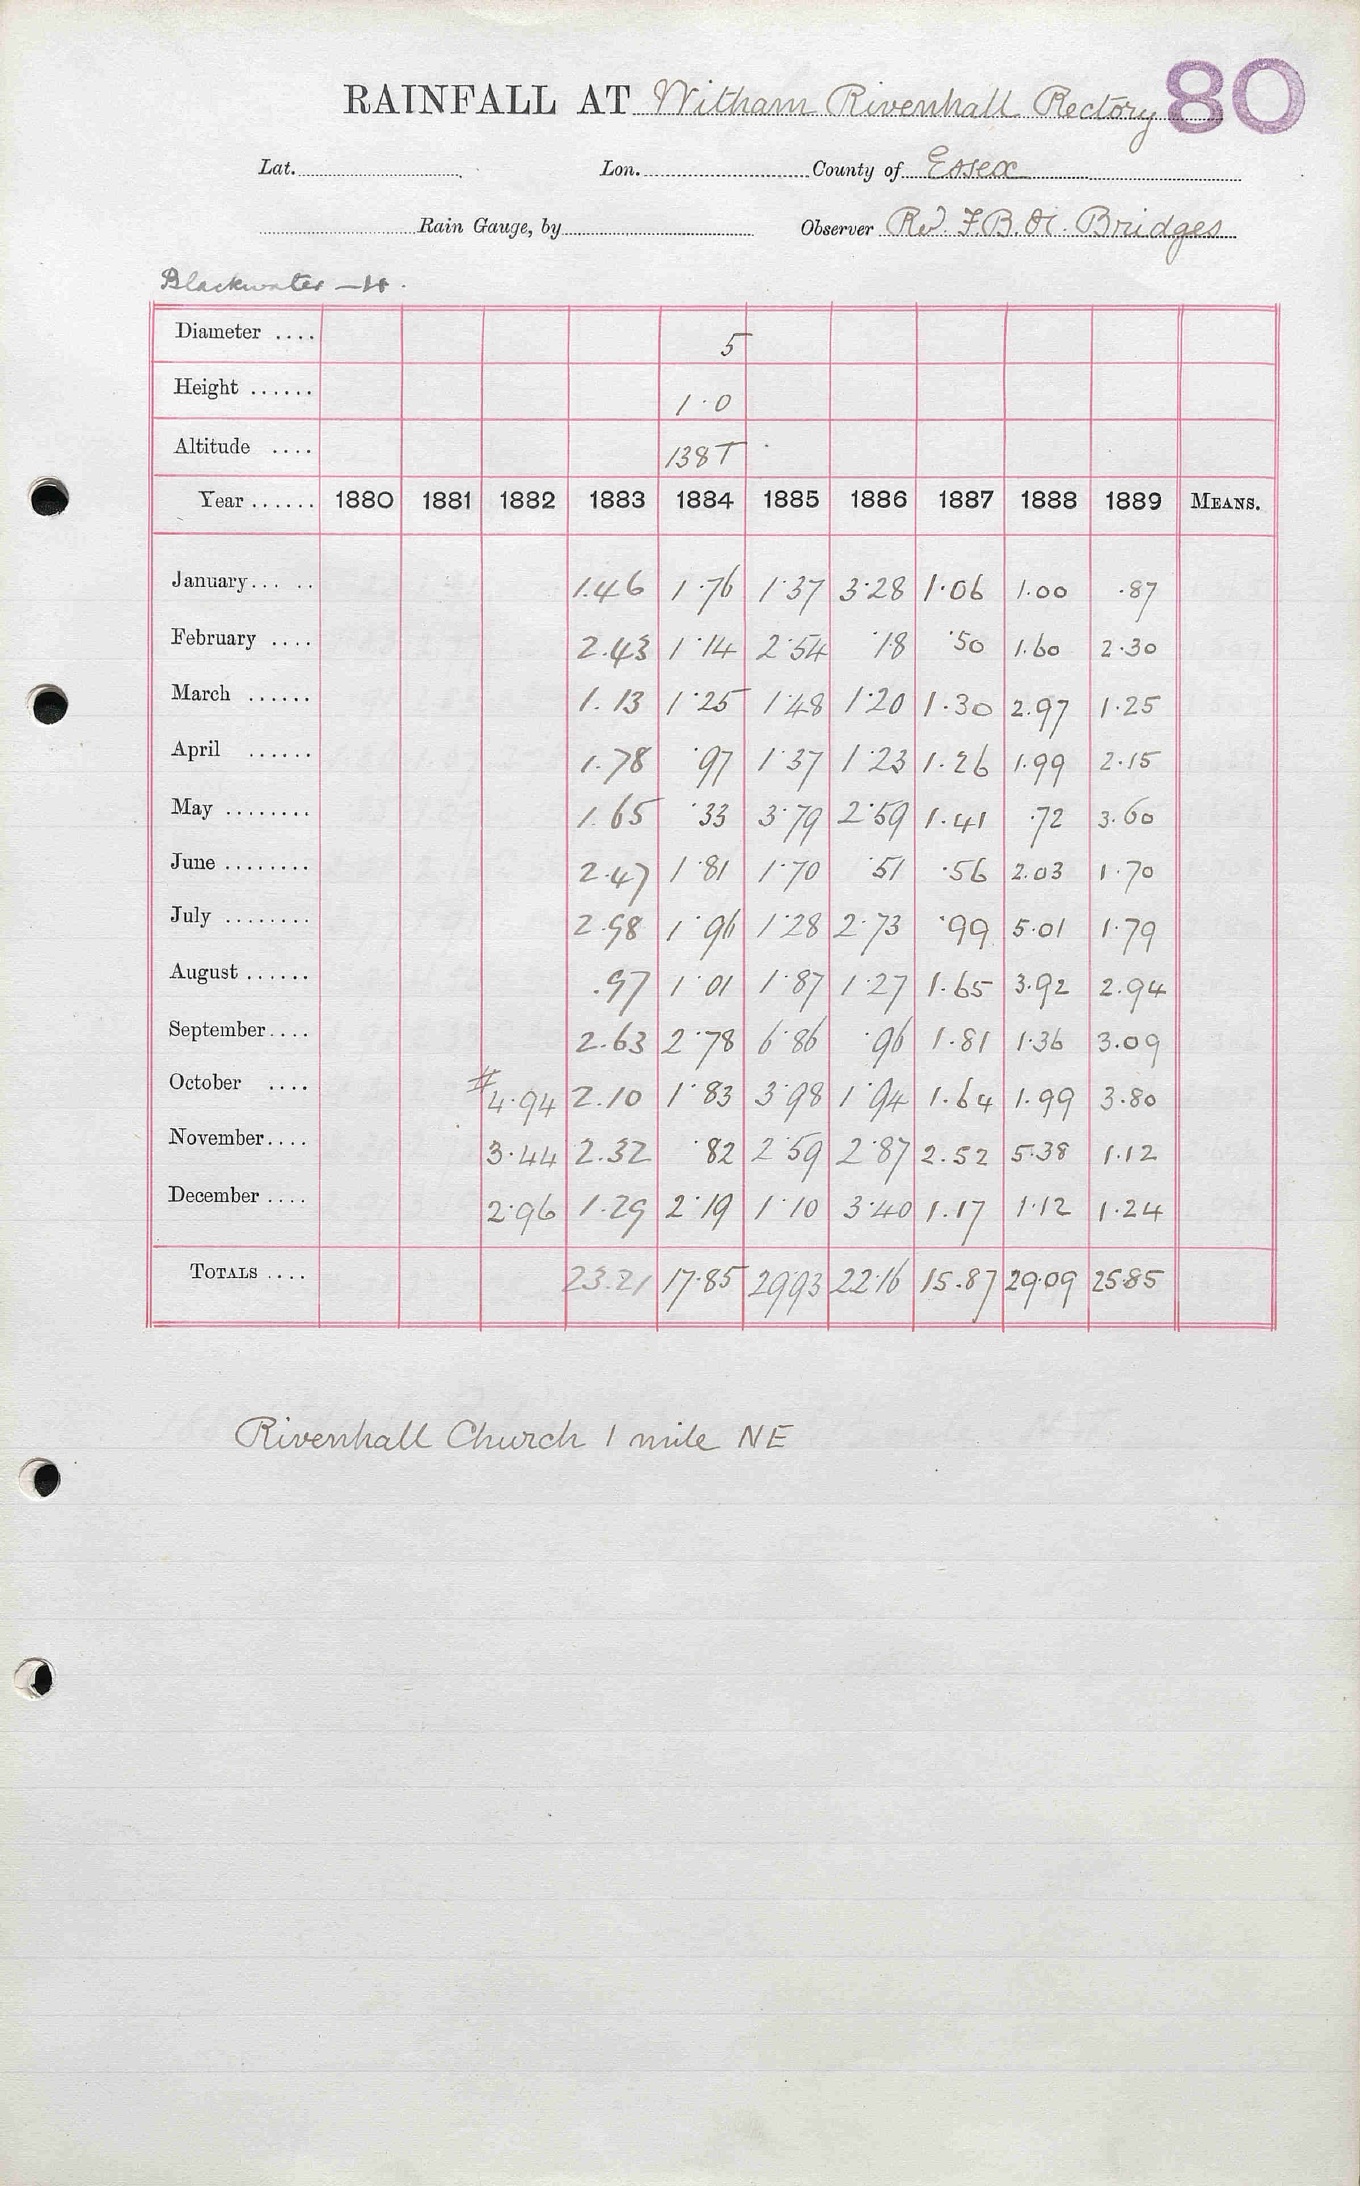 RAINFALL AT Witham Rivenhall Rectory 80
Lat. Lon. County of Essex
Rain Gauge, by Observer Rev. F.B.H. Bridges
Blackwater
Diameter .... 5
Height ...... 1·0
Altitude .... 138T
Year ...... 1880 1881 1882 1883 1884 1885 1886 1887 1888 1889 MEANS.
January... .. 1.46 1·76 1·37 3·28 1·06 1.00 ·87
February .... 2.43 1·14 2·54 ·18 ·50 1.60 2·30
March ...... 1.13 1·25 1·48 1·20 1·30 2.97 1·25
April ...... 1.78 ·97 1·37 1·23 1·26 1.99 2·15
May ........ 1.65 ·33 3·79 2·59 1·41 ·72 3·60
June ........ 2·47 1·81 1·70 ·51 ·56 2·03 1·70
July ........ 2·98 1·96 1·28 2·73 ·99 5·01 1·79
August ...... .97 1·01 1·87 1·27 1·65 3.92 2·94
September.... 2.63 2·78 6·86 ·96 1·81 1·36 3·09
October .... #4·94 2.10 1·83 3·98 1·94 1·64 1.99 3·80
November.... 3·44 2.32 ·82 2·59 2·87 2·52 5·38 1·12
December .... 2·96 1·29 2·19 1·10 3·40 1·17 1·12 1·24
TOTALS .... 23.21 17·85 29·93 22·16 15·87 29·09 25·85
Rivenhall Church 1 mile NE